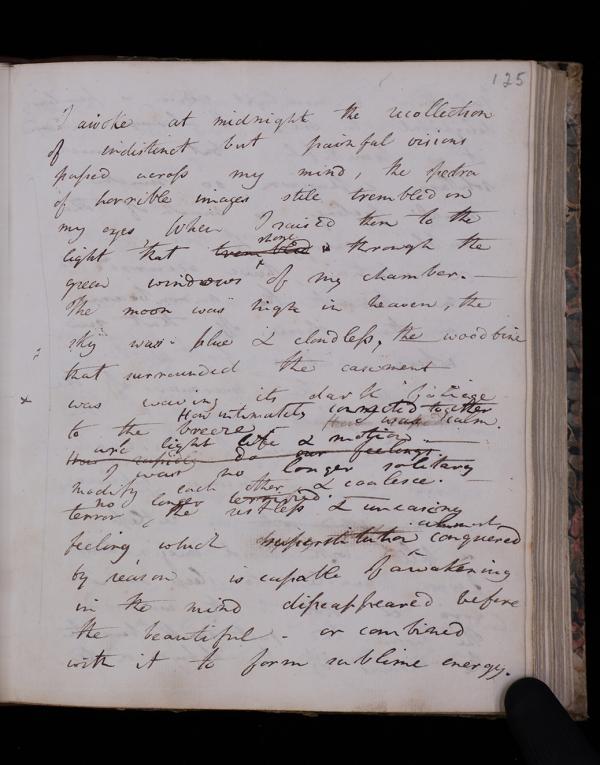 125
I awoke at midnight the recollection
of indistinct but painful visions
passed across my mind, the spectra
of horrible images still trembled on
my eyes when I raised them to the
shone
light that trembled through the
green windows of my chamber. —
The moon was high in heaven, the
sky was blue & cloudless, the woodbine
that surrounded the casement
was waving its dark foliage
How intimately connected together
to the breeze. calm.
are light life & motion. —
How rapidly do our feelings
I was no longer solitary
modify each other & coalesce. —
no longer terrified.
terror, the restless & unceasing
feeling which superstition conquered
by reason is capable of awakening
in the mind disappeared before
the beautiful — or combined
with it to form sublime energy.